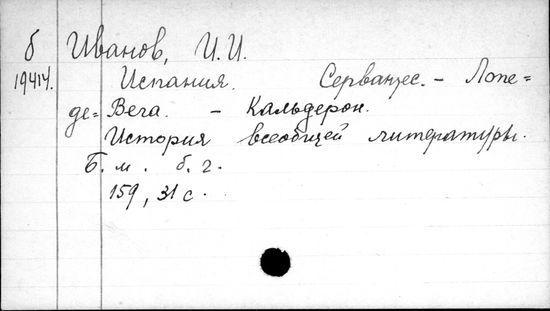 б Иванов, И.И.
19414. Испания. Сервантес. - Лопе=
де=Вега. - Кальдерон.
История всеобщей литературы.
Б.м. б.г.
159, 31 с.